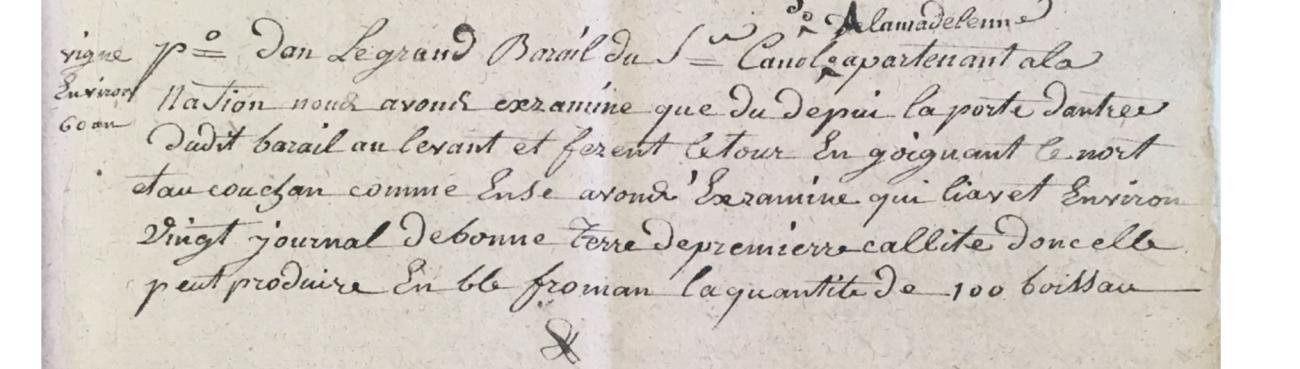 Delamadelenne
vigne
Environ
60 an
po Dan Legrand Barail du Sr Canole apartenant ala
Nation nous avons exzamine que du depui la porte dantree
Dudit barail au levant et fezent le tour En goignant le nort
et au couchan comme Ense avons Exzamine qui liavet Environ
Vingt journal de bonne Terre depremierre callite doncelle
peut produire En ble froman laquantite De 100 boissau